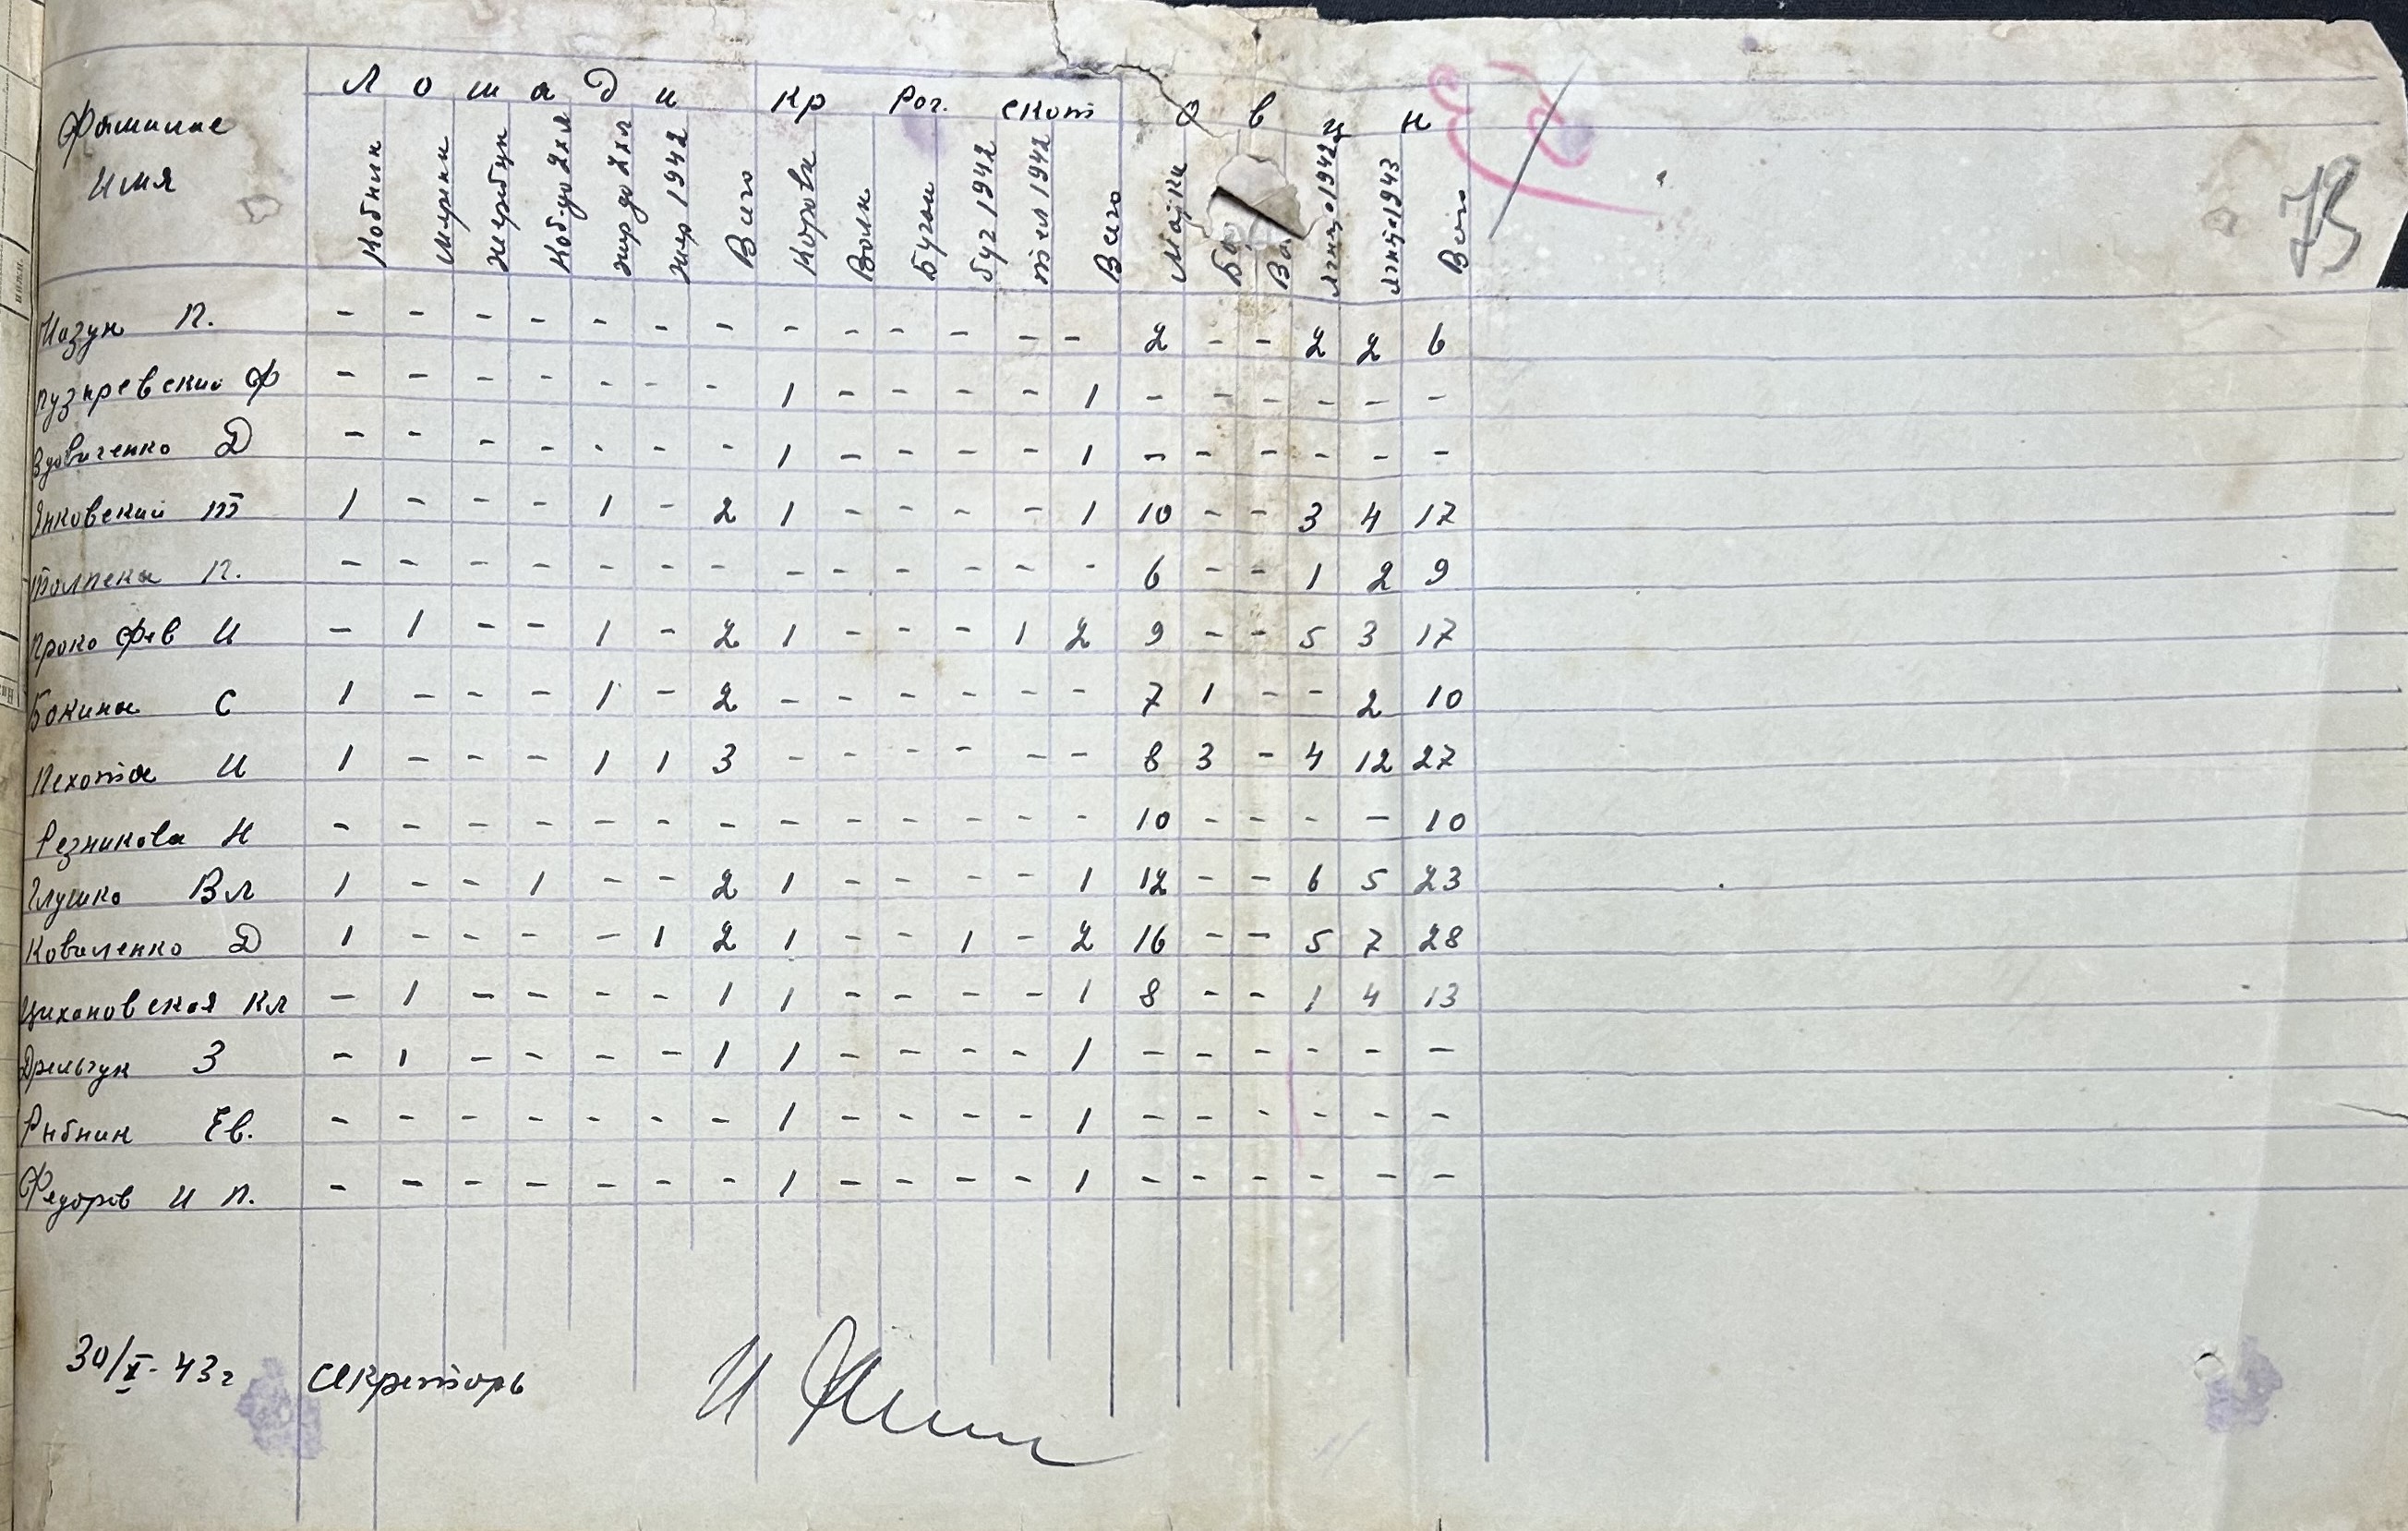 Фамилие Имя
Лошади
Кр Рог. скот
Овци
Кобыли
Мерини
Жеребци
Коб. до 2х л
жер до 2х л
жер 1942
Всего
Корови
Воли
Бугаи
буг 1942
тел 1942
Всего
Матки
Ба
Ва
ягнц. 1942
ягнц. 1943
Всего
73
Мазун П. - - - - - - - - - - - - - 2 - - 2 2 6
Пузиревский Ф - - - - - - - 1 - - - - 1 - - - - - -
Вдовиченко Д - - - - - - - 1 - - - - 1 - - - - - -
Янковский Т 1 - - - 1 - 2 1 - - - - 1 10 - - 3 4 17
Толпека П. - - - - - - - - - - - - - 6 - - 1 2 9
Прокофев И - 1 - - 1 - 2 1 - - - 1 2 9 - - 5 3 17
Бокина С 1 - - - 1 - 2 - - - - - - 7 1 - - 2 10
Пехота И 1 - - - 1 1 3 - - - - - - 8 3 - 4 12 27
Резникова Н - - - - - - - - - - - - - 10 - - - - 10
Глушко Вл 1 - - 1 - - 2 1 - - - - 1 12 - - 6 5 23
Коваленко Д 1 - - - - 1 2 1 - - 1 - 2 16 - - 5 7 28
Цихановская Кл - 1 - - - - 1 1 - - - - 1 8 - - 1 4 13
Дрельчук З - 1 - - - - 1 1 - - - - 1 - - - - - -
Рибник Ев. - - - - - - - 1 - - - - 1 - - - - - -
Федоров И П. - - - - - - - 1 - - - - 1 - - - - - -
30/X-43г секретарь